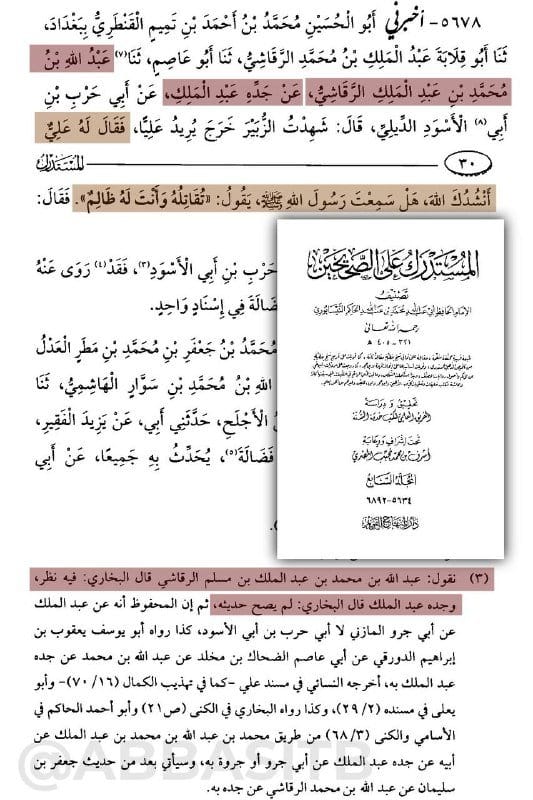 ٥٦٧٨- أخبرني أَبُو الْحُسَيْنِ مُحَمَّدُ بْنُ أَحْمَدَ بْنِ تَمِيمٍ الْقَنْطَرِيُّ بِبَغْدَادَ،
ثَنَا أَبُو قِلَابَةَ عَبْدُ الْمَلِكِ بْنُ مُحَمَّدٍ الرَّقَاشِيُّ، ثَنَا أَبُو عَاصِمٍ، ثَنَا(٧) عَبْدُ اللهِ بْنُ
مُحَمَّدِ بْنِ عَبْدِ الْمَلِكِ الرَّقَاشِيُّ، عَنْ جَدِّهِ عَبْدِ الْمَلِكِ، عَنْ أَبِي حَرْبِ بْنِ
أَبِي(٨) الْأَسْوَدِ الدِّيلِيِّ، قَالَ: شَهِدْتُ الزُّبَيْرَ خَرَجَ يُرِيدُ عَلِيًّا، فَقَالَ لَهُ عَلِيٌّ
٣٠ المُسْتَدْرَكُ
أَنْشُدُكَ اللهَ، هَلْ سَمِعْتَ رَسُولَ اللهِ ﷺ، يَقُولُ: «تُقَاتِلُهُ وَأَنْتَ لَهُ ظَالِمٌ». فَقَالَ:
حَرْبِ بْنِ أَبِي الْأَسْوَدِ(٣)، فَقَدْ(٤) رَوَى عَنْهُ
ضَالَةَ فِي إِسْنَادٍ وَاحِدٍ.
مُحَمَّدُ بْنُ جَعْفَرِ بْنِ مُحَمَّدِ بْنِ مَطَرٍ الْعَدْلُ
اللهِ بْنُ مُحَمَّدِ بْنِ سَوَّارٍ الْهَاشِمِيُّ، ثَنَا
الْأَجْلَحِ، حَدَّثَنِي أَبِي، عَنْ يَزِيدَ الْفَقِيرِ،
فَضَالَةَ(٥)، يُحَدِّثُ بِهِ جَمِيعًا، عَنْ أَبِي
المُسْتَدْرَكُ عَلَى الصَّحِيحَيْنِ
تصنيف
الإمام الحافظ أبي عبد الله محمد بن عبد الله الحاكم النيسابوري
رحمه الله تعالى
٣٢١ - ٤٠٥ هـ
تحقيق ودراسة
تحت إشراف ورعاية
المجلد السابع
٥٦٣٤-٦٨٩٢
(٣) نقول: عبد الله بن محمد بن عبد الملك بن مسلم الرقاشي قال البخاري: فيه نظر،
وجده عبد الملك قال البخاري: لم يصح حديثه، ثم إن المحفوظ أنه عن عبد الملك
عن أبي جرو المازني لا أبي حرب بن أبي الأسود، كذا رواه أبو يوسف يعقوب بن
إبراهيم الدورقي عن أبي عاصم الضحاك بن مخلد عن عبد الله بن محمد عن جده
عبد الملك به، أخرجه النسائي في مسند علي -كما في تهذيب الكمال (١٦/ ٧٠)- وأبو
يعلى في مسنده (٢/ ٢٩)، وكذا رواه البخاري في الكنى (ص٢١) وأبو أحمد الحاكم في
الأسامي والكنى (٣/ ٦٨) من طريق محمد بن عبد الله بن محمد بن عبد الملك عن
أبيه عن جده عبد الملك عن أبي جرو أو جروة به، وسيأتي بعد من حديث جعفر بن
سليمان عن عبد الله بن محمد الرقاشي عن جده به.
@ABBASITB